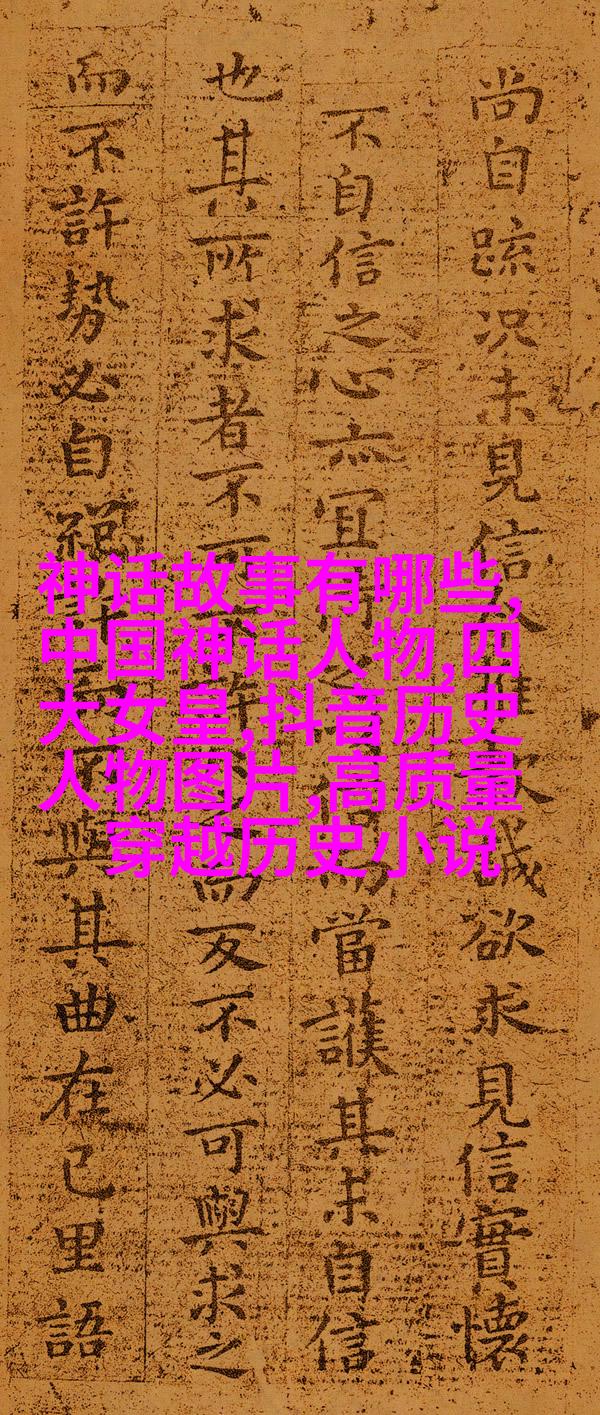 尚自疏况未見信推款誠欲求見信實懷
不自信之心亦宜待之以信而當護其未自信
也其所求者不可不許而反不必可與求之
而不許勢必自絕許而不與其曲在己里語
神话故事有哪些,
中国神话人物,四
大女皇,抖音历史
人物图片,高质量
穿越历史小说